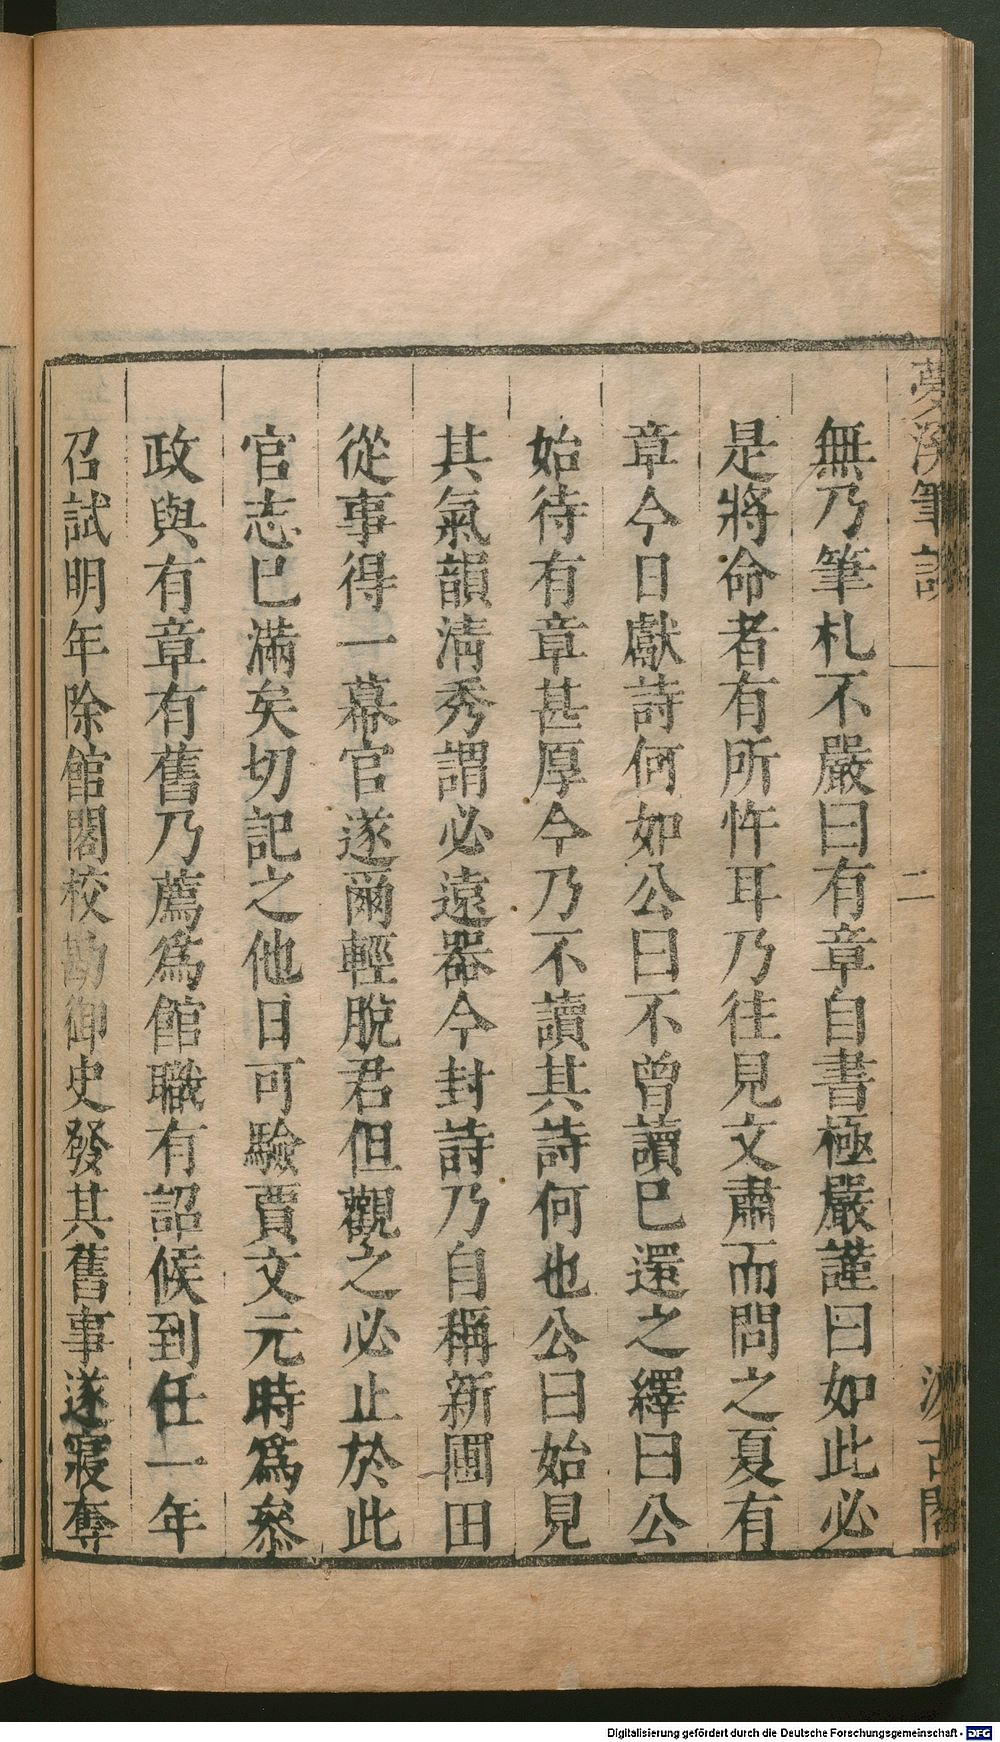 夢溪筆談
二
汲古閣
無乃筆札不嚴曰有章自書極嚴謹曰如此必
是將命者有所忤耳乃往見文肅而問之夏有
章今日獻詩何如公曰不曾讀已還之繹曰公
始待有章甚厚今乃不讀其詩何也公曰始見
其氣韻清秀謂必遠器今封詩乃自稱新圃田
從事得一幕官遂爾輕脫君但觀之必止於此
官志已滿矣切記之他日可驗賈文元時爲叅
政與有章有舊乃薦爲館職有詔候到任一年
召試明年除館閣校勘御史發其舊事遂寢奪
Digitalisierung gefördert durch die Deutsche Forschungsgemeinschaft - DFG